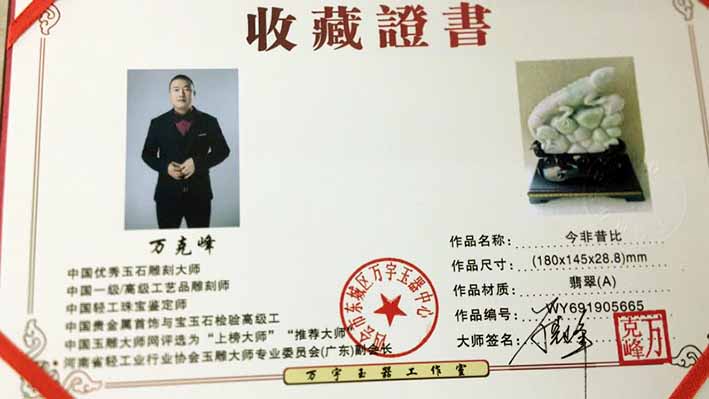 收藏證書
万克峰
中国优秀玉石雕刻大师
中国一级/高级工艺品雕刻师
中国轻工珠宝鉴定师
中国贵金属首饰与宝玉石检验高级工
中国玉雕大师网评选为“上榜大师”“推荐大师”
河南省轻工业行业协会玉雕大师专业委员会(广东)副会长
作品名称: 今非昔比
作品尺寸: (180x145x28.8)mm
作品材质: 翡翠(A)
作品编号: WY691905665
大师签名:
万克峰
四会市东城区万宇玉器中心
万宇玉器工作室